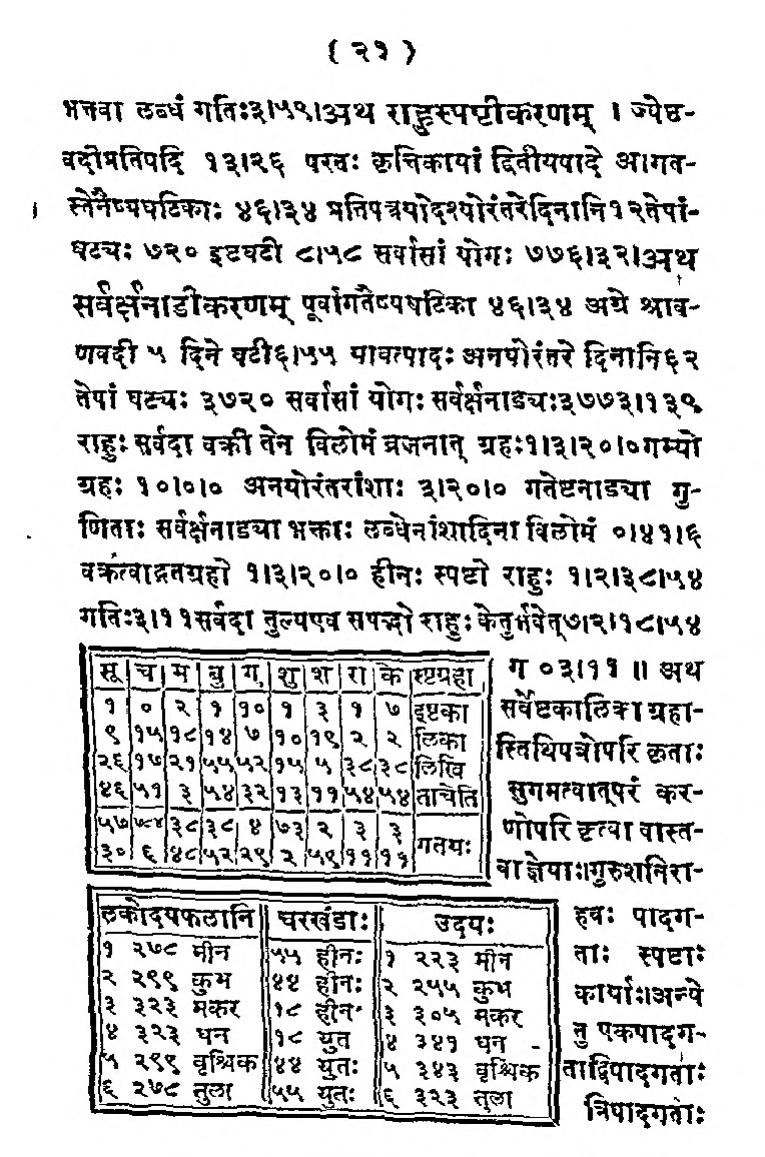 ( २१ )
भत्तवा लब्धं गतिः३।५९।अथ राहुस्पष्टीकरणम् । ज्येष्ठ-
वदीप्रतिपदि १३।२६ परतः कृत्तिकायां द्वितीयपादे आगत-
स्तेनैष्यघटिकाः ४६।३४ प्रतिपत्रयोदश्योरंतरेदिनानि१२तेषां-
घट्यः ७२० इष्टघटी ८।५८ सर्वासां योगः ७७६।३२।अथ
सर्वर्क्षनाडीकरणम् पूर्वागतैष्यघटिका ४६।३४ अग्रे श्राव-
णवदी ५ दिने घटी६।५५ यावत्पादः अनयोरंतरे दिनानि६२
तेषां घट्यः ३७२० सर्वासां योगः सर्वर्क्षनाड्यः३७७३।१३९
राहुः सर्वदा वक्री तेन विलोमं व्रजनात् ग्रहः१।३।२०।०गम्यो
ग्रहः १०।०।० अनयोरंतरांशाः ३।२०।० गतेष्टनाड्या गु-
णिताः सर्वर्क्षनाड्या भक्ताः लब्धेनांशादिना विलोमं ०।४१।६
वक्रत्वाद्गतग्रहो १।३।२०।० हीनः स्पष्टो राहुः १।२।३८।५४
गतिः३।११सर्वदा तुल्यएव सषड्भो राहुः केतुर्भवेत्७।२।१८।५४
सू च म बु गु शु श रा के स्पष्टग्रहा
१ ० २ १ १० १ ३ १ ७ इष्टका
९ १५ १८ १४ ७ १० १९ २ २ लिका
२६ १७ २१ ५५ ५२ १५ ५ ३८ ३८ लिखि
४६ ५१ ३ ५४ ३२ १३ ११ ५४ ५४ ताचेति
५७ ७८४ ३८ ३८ ४ ७३ २ ३ ३ गतयः
३० ६ ४८ ५२ २९ २ ५९ ११ ११
ग ०३।११ ॥ अथ
सर्वेष्टकालिका ग्रहा-
स्तिथिपत्रोपरि कृताः
सुगमत्वात्परं कर-
णोपरि कृत्वा वास्त-
वा ज्ञेयाः।गुरुशनिरा-
लकोदयफलानि चरखंडाः उदयः
१ २७८ मीन ५५ हीनः १ २२३ मीन
२ २९९ कुभ ४४ हीनः २ २५५ कुभ
३ ३२३ मकर १८ हीनः ३ ३०५ मकर
४ ३२३ धन १८ युत ४ ३४१ धन
५ २९९ वृश्चिक ४४ युतः ५ ३४३ वृश्चिक
६ २७८ तुला ५५ युतः ६ ३२३ तुला
हवः पादग-
ताः स्पष्टाः
कार्याः।अन्ये
तु एकपादग-
ताद्विपादगताः
त्रिपादगताः